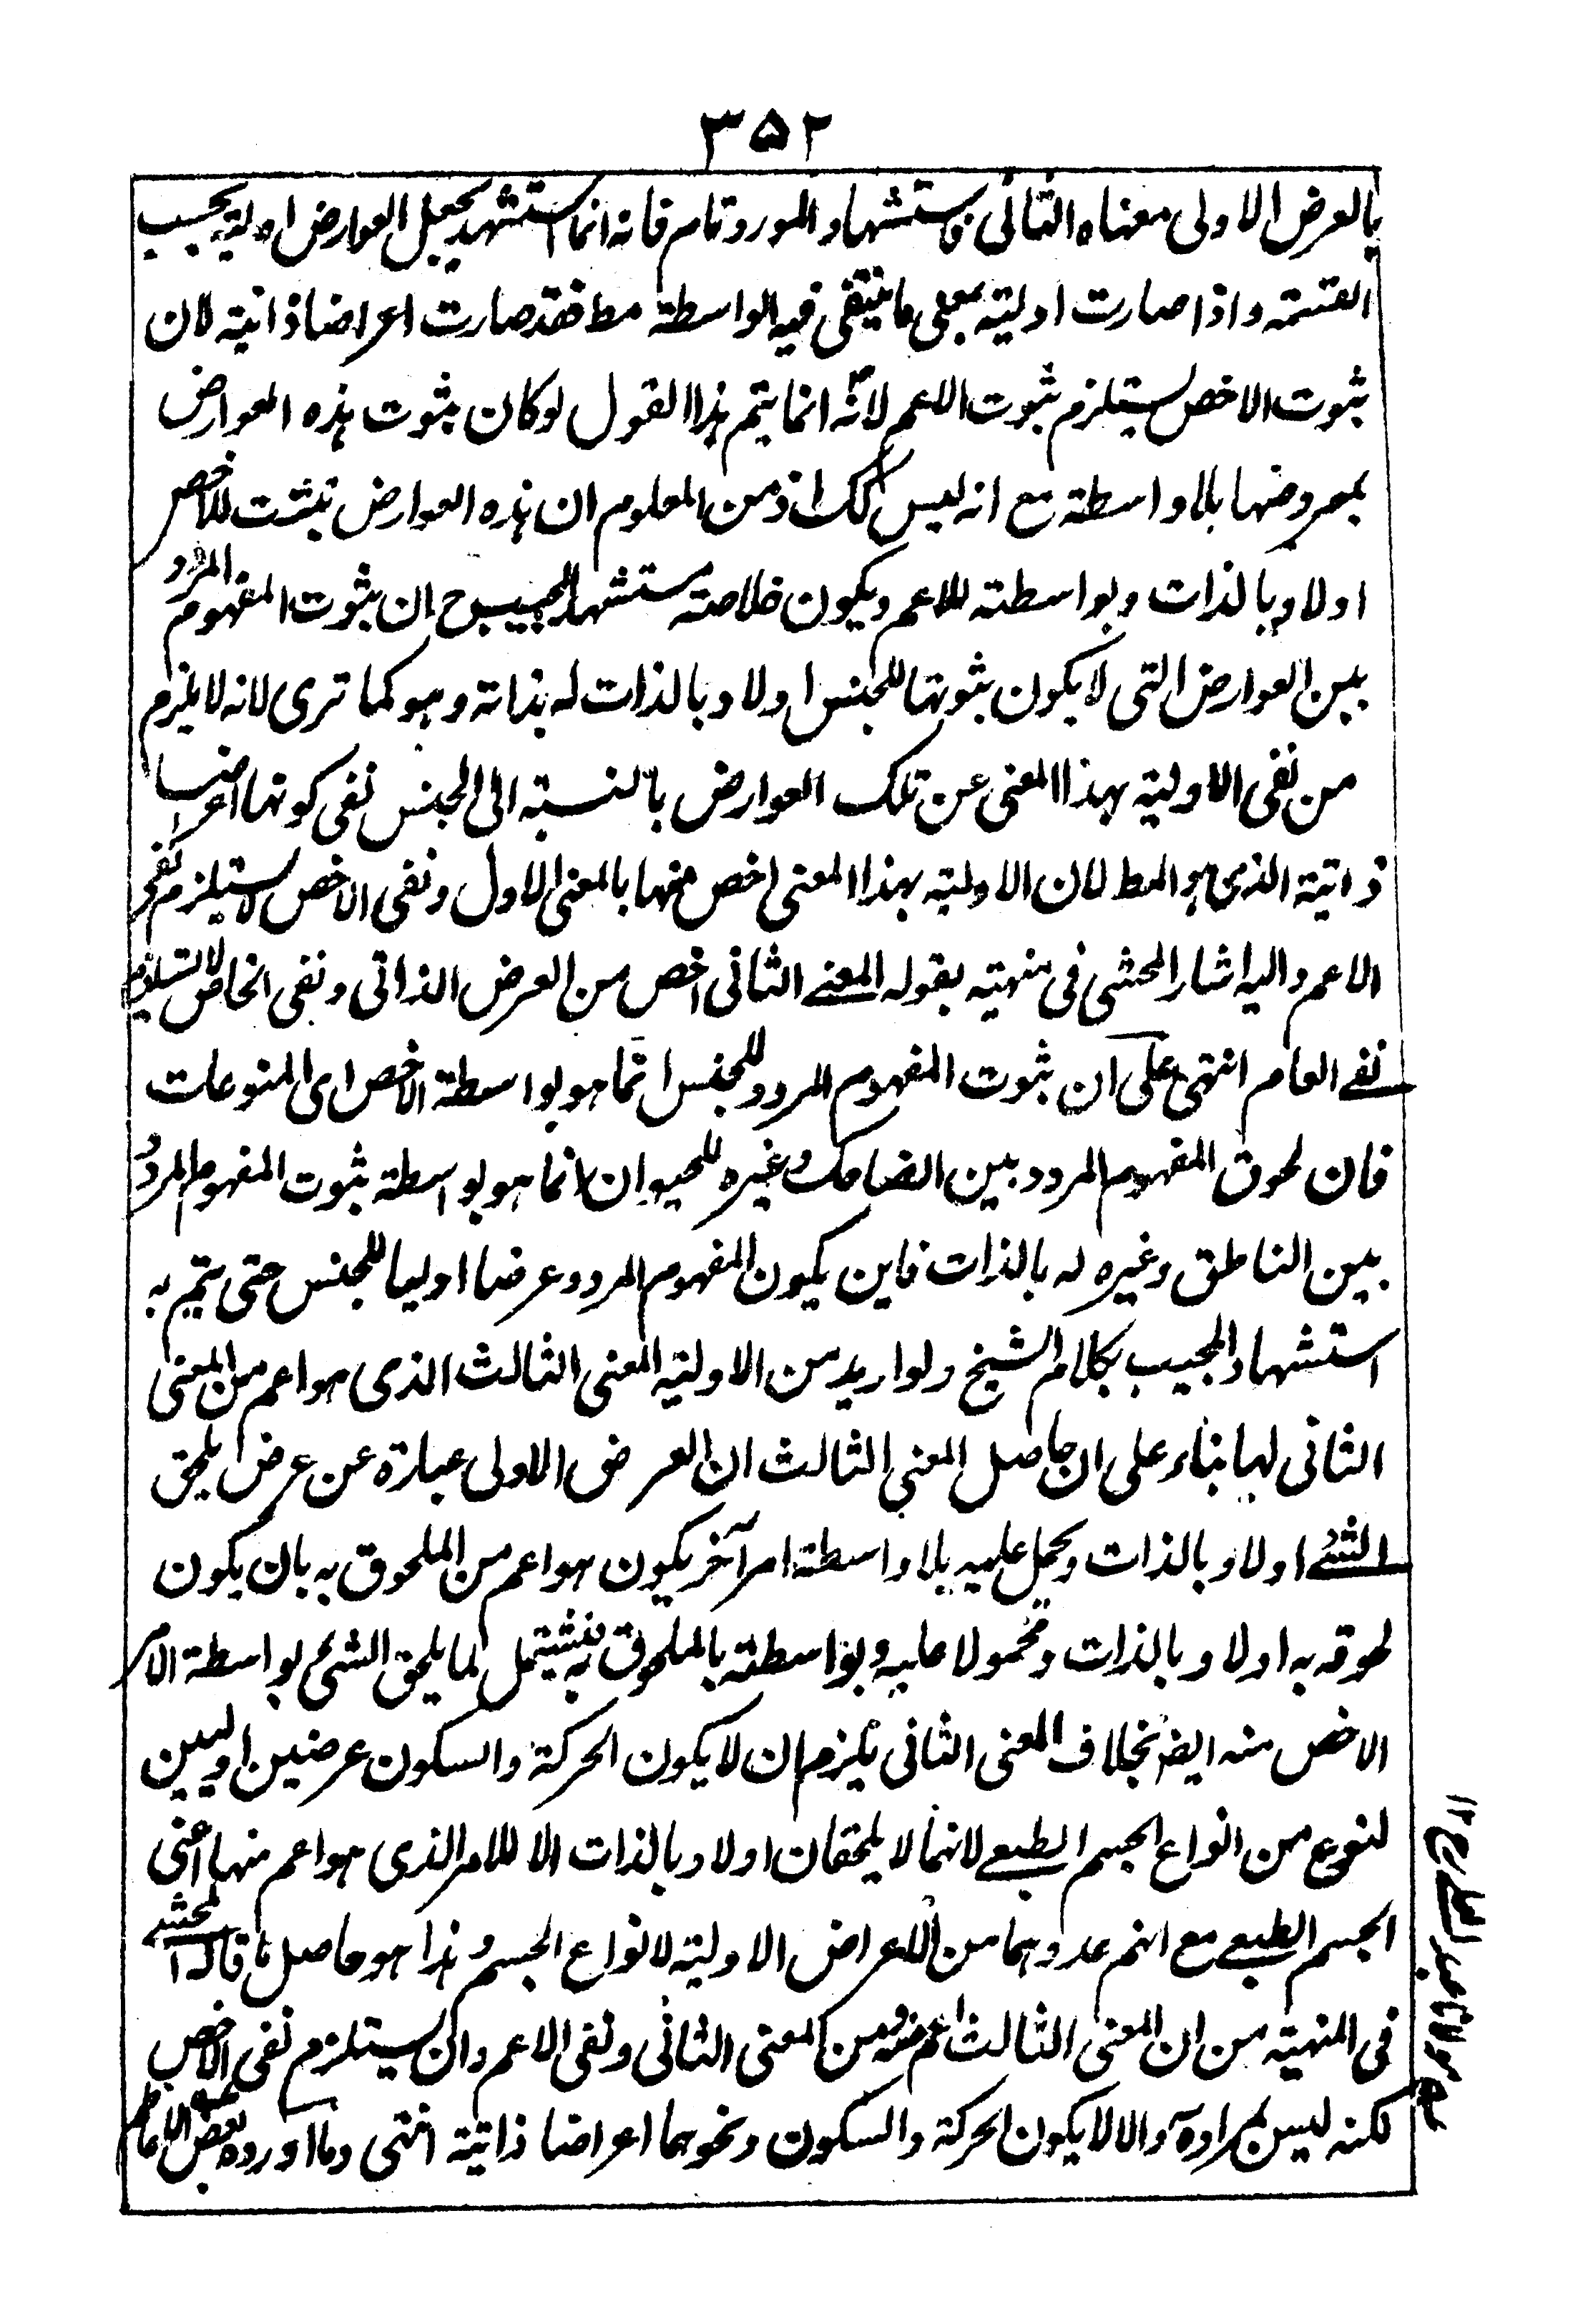 ٣٥٢
بالعرض الاولى معناه الثانى فاستشهاد المورد تام فانه انما استشهد بجعل العوارض اولية بحسب
القسمة واذا صارت اولية بمعنى ما ينتفى فيه الواسطة مط فقد صارت اعراضا ذاتية لان
ثبوت الاخص يستلزم ثبوت الاعم لانه انما يتم هذا القول لو كان ثبوت هذه العوارض
بمعروضها بلا واسطة مع انه ليس كك اذ من المعلوم ان هذه العوارض تثبت للاخص
اولا وبالذات وبواسطته للاعم ويكون خلاصة مستشهد المجيب ح ان ثبوت المفهوم المردد
بين العوارض التى لا يكون ثبوتها للجنس اولا وبالذات له بذاته وهو كما ترى لانه لا يلزم
من نفى الاولية بهذا المعنى عن تلك العوارض بالنسبة الى الجنس نفى كونها اعراضا
ذاتية الذى هو المط لان الاولية بهذا المعنى اخص منها بالمعنى الاول ونفى الاخص لا يستلزم نفى
الاعم واليه اشار المحشى فى منهيته بقوله المعنے الثانى اخص من العرض الذاتى ونفى الخاص لا يستلزم
نفے العام انتهى على ان ثبوت المفهوم المردد للجنس انما هو بواسطة الاخص اى المنوعات
فان لحوق المفهوم المردد بين الضاحك وغيره للحيوان انما هو بواسطة ثبوت المفهوم المردد
بين الناطق وغيره له بالذات فاين يكون المفهوم المردد عرضا اوليا للجنس حتى يتم به
استشهاد المجيب بكلام الشيخ ولو اريد من الاولية المعنى الثالث الذى هو اعم من المعنى
الثانى لها بناء على ان حاصل المعنى الثالث ان العرض الاولى عبارة عن عرض يلحق
الشئے اولا وبالذات ويحمل عليه بلا واسطة امر آخر يكون هو اعم من الملحوق به بان يكون
لحوقه به اولا وبالذات ومحمولا عليه وبواسطته بالملحوق به فيشتمل لما يلحق الشئ بواسطة الامر
الاخص منه ايضا بخلاف المعنى الثانى يلزم ان لا يكون الحركة والسكون عرضين اوليين
لنوع من انواع الجسم الطبعے لانهما لا يلحقان اولا وبالذات الا للامر الذى هو اعم منها اعنى
الجسم الطبعے مع انهم عدوهما من الاعراض الاولية لانواع الجسم وهذا هو حاصل ما قاله المحشے
فى المنهية من ان المعنى الثالث اعم من المعنى الثانى ونفى الاعم وان يستلزم نفى الاخص
لكنه ليس بمراده والا لا يكون الحركة والسكون ونحوهما اعراضا ذاتية انتهى وما اورده بعض الاعاظم